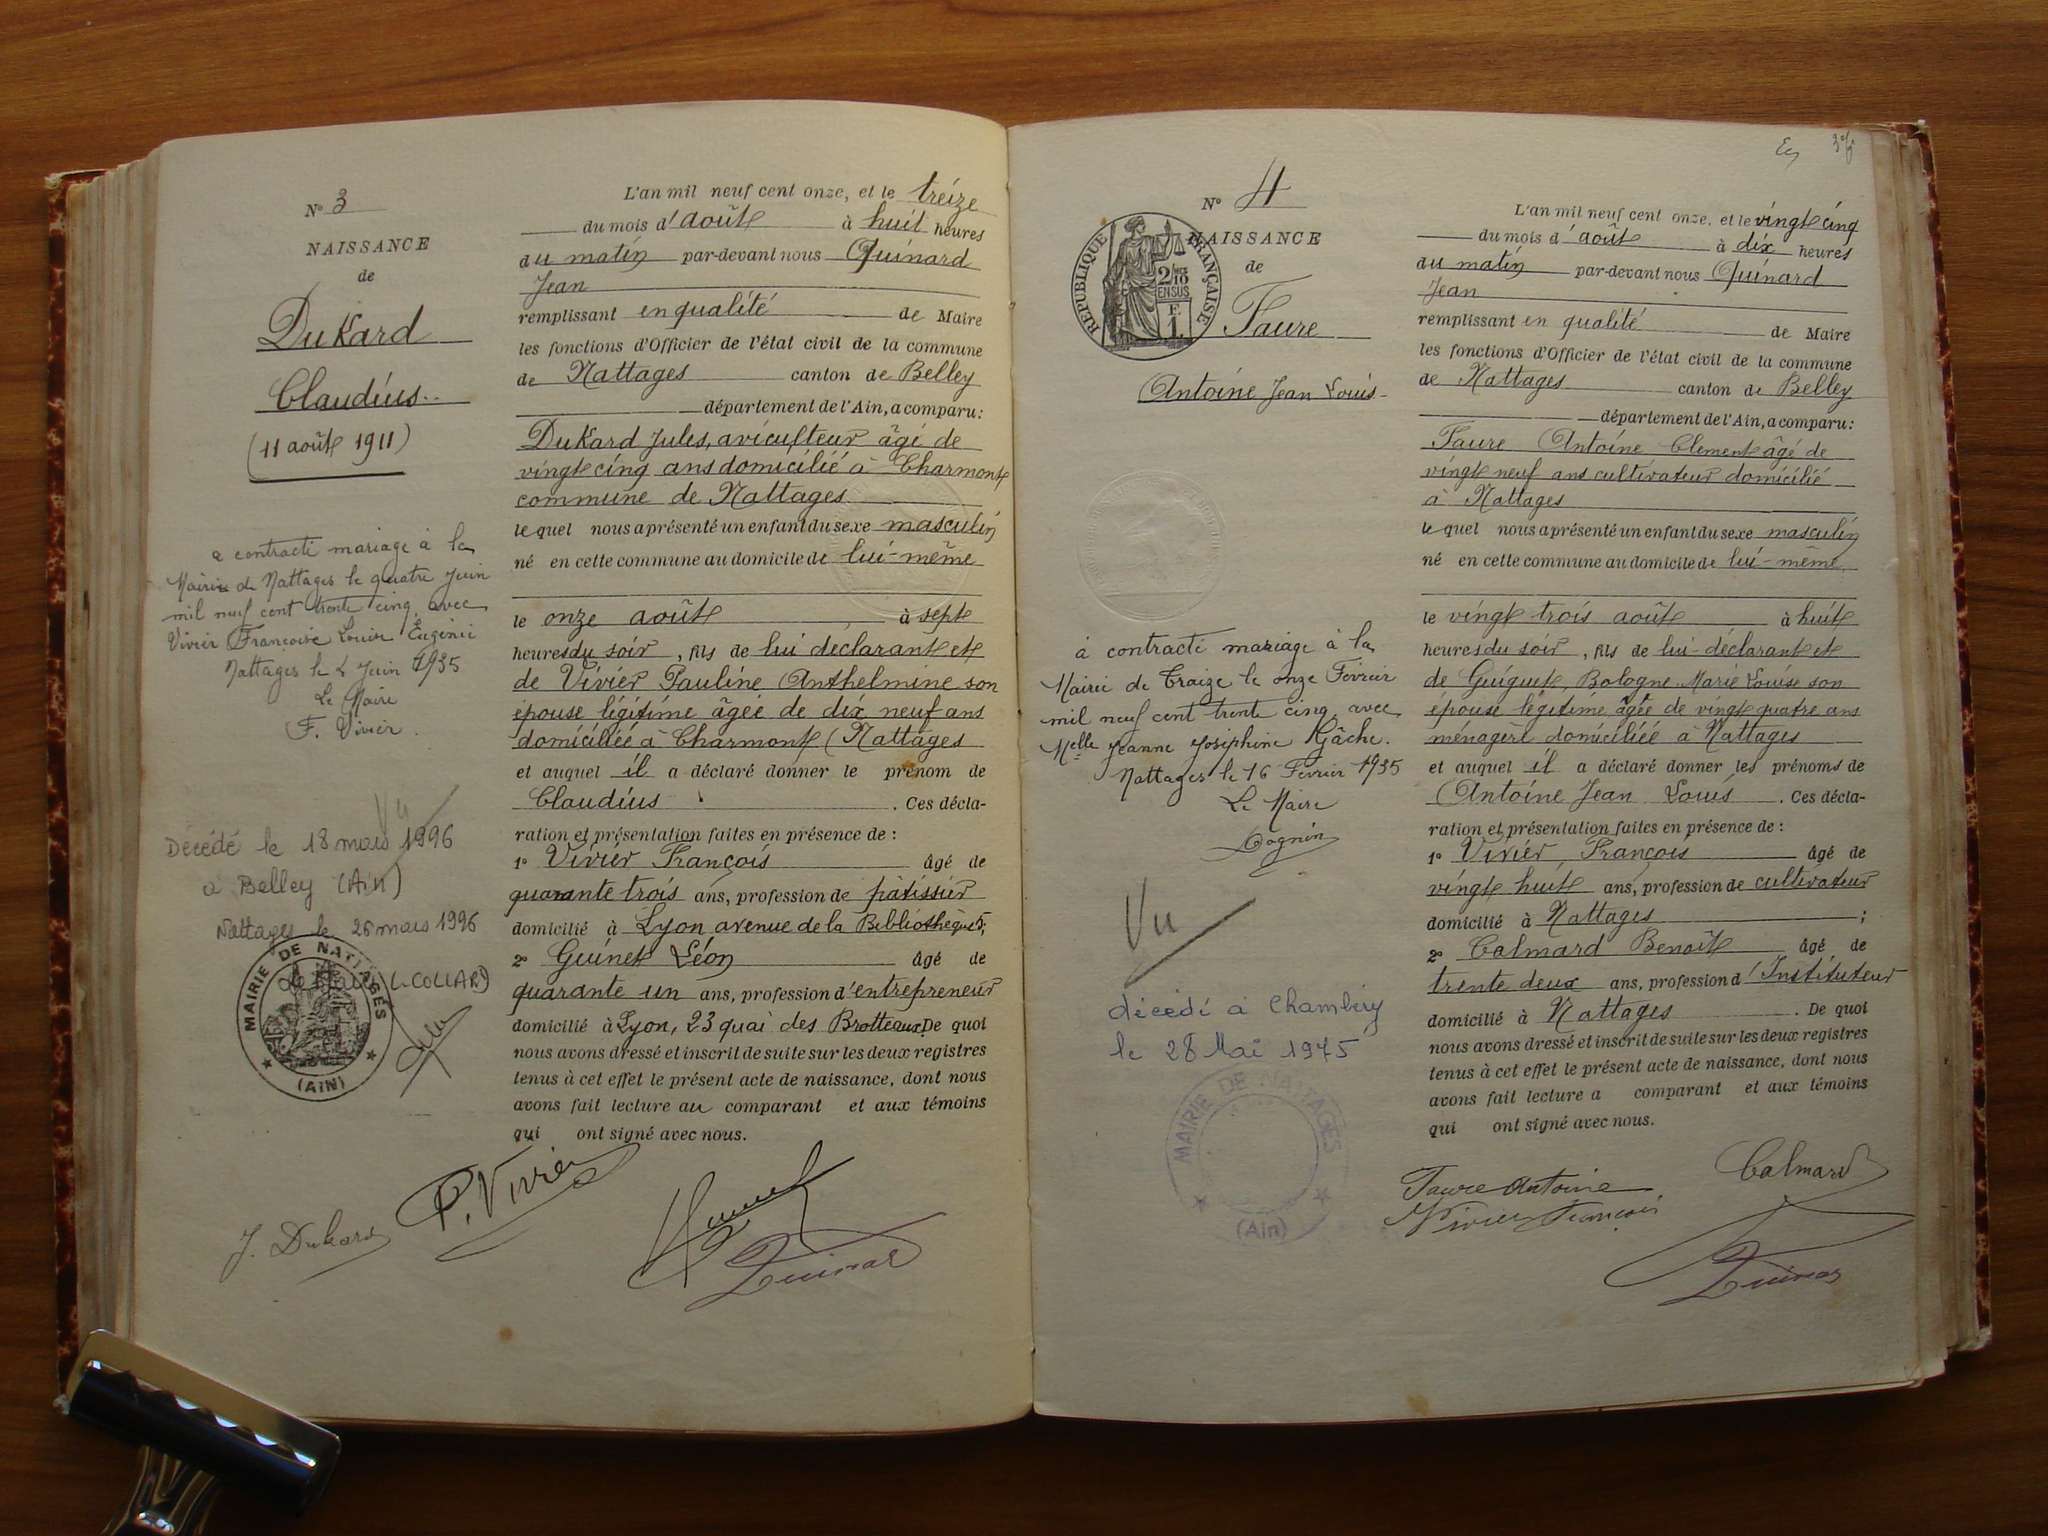 N° 3
NAISSANCE
de
Dukard
Claudius..
(11 août 1911)
a contracté mariage à la
Mairie de Nattages le quatre Juin
mil neuf cent trente cinq avec
Vivier Françoise Louise Eugénie
Nattages le 4 Juin 1935
Le Maire
F. Vivier.
Vu
Décédé le 18 mars 1996
à Belley (Ain)
Nattages le 26 mars 1996
(L. COLLARD)
MAIRIE DE NATTAGES
(AIN)
L'an mil neuf cent onze, et le treize
du mois d'août à huit heures
du matin par-devant nous Quinard
Jean
remplissant en qualité de Maire
les fonctions d'Officier de l'état civil de la commune
de Nattages canton de Belley
département de l'Ain, a comparu:
Dukard Jules, aviculteur âgé de
vingt cinq ans domicilié à Charmont
commune de Nattages
lequel nous a présenté un enfant du sexe masculin
né en cette commune au domicile de lui-même
le onze août à sept
heures du soir, fils de lui déclarant et
de Vivier Pauline Anthelmine son
épouse légitime âgée de dix neuf ans
domiciliée à Charmont (Nattages
et auquel il a déclaré donner le prénom de
Claudius. Ces décla-
ration et présentation faites en présence de:
1° Vivier François âgé de
quarante trois ans, profession de pâtissier
domicilié à Lyon avenue de la Bibliothèque 5;
2° Guinet Léon âgé de
quarante un ans, profession d'entrepreneur
domicilié à Lyon, 23 quai des Brotteaux. De quoi
nous avons dressé et inscrit de suite sur les deux registres
tenus à cet effet le présent acte de naissance, dont nous
avons fait lecture au comparant et aux témoins
qui ont signé avec nous.
J. Dukard
P. Vivier
Quinard
N° 4
RÉPUBLIQUE FRANÇAISE
2/10 EN SUS
NAISSANCE
de
Faure
Antoine Jean Louis
à contracté mariage à la
Mairie de Traize le onze Février
mil neuf cent trente cinq avec
Melle Jeanne Joséphine Gâche.
Nattages le 16 Février 1935
Le Maire
Cognin
Vu
décédé à Chambéry
le 28 Mai 1975
MAIRIE DE NATTAGES
(Ain)
L'an mil neuf cent onze, et le vingt cinq
du mois d'août à dix heures
du matin par-devant nous Quinard
Jean
remplissant en qualité de Maire
les fonctions d'Officier de l'état civil de la commune
de Nattages canton de Belley
département de l'Ain, a comparu:
Faure Antoine Clement âgé de
vingt neuf ans cultivateur domicilié
à Nattages
lequel nous a présenté un enfant du sexe masculin
né en cette commune au domicile de lui-même
le vingt trois août à huit
heures du soir, fils de lui-déclarant et
de Guiguet, Bologne Marie Louise son
épouse légitime âgée de vingt quatre ans
ménagère domiciliée à Nattages
et auquel il a déclaré donner les prénoms de
Antoine Jean Louis. Ces décla-
ration et présentation faites en présence de:
1° Vivier, François âgé de
vingt huit ans, profession de cultivateur
domicilié à Nattages;
2° Calmard Benoît âgé de
trente deux ans, profession d'Instituteur
domicilié à Nattages. De quoi
nous avons dressé et inscrit de suite sur les deux registres
tenus à cet effet le présent acte de naissance, dont nous
avons fait lecture a comparant et aux témoins
qui ont signé avec nous.
Calmard
Faure Antoine
Vivier François
Quinard